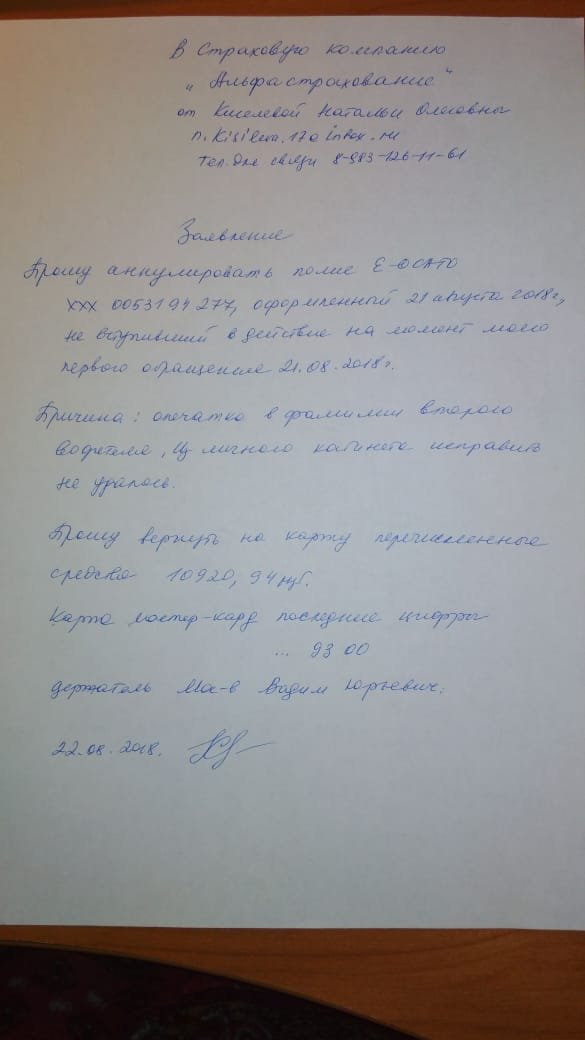 В Страховую компанию
"Альфастрахование"
от Киселевой Натальи Олеговны
n.kisileva.17@inbox.ru
тел. для связи 8-983-126-11-61
Заявление
Прошу аннулировать полис Е-ОСАГО
ХХХ 0053194277, оформленный 21 августа 2018г,
не вступивший в действие на момент моего
первого обращения 21.08.2018г.
Причина: опечатка в фамилии второго
водителя, Из личного кабинета исправить
не удалось.
Прошу вернуть на карту перечисленные
средства 10920,94 руб.
Карта мастер-кард последние цифры
... 9300
держатель Мос-в Вадим Юрьевич.
22.08.2018.